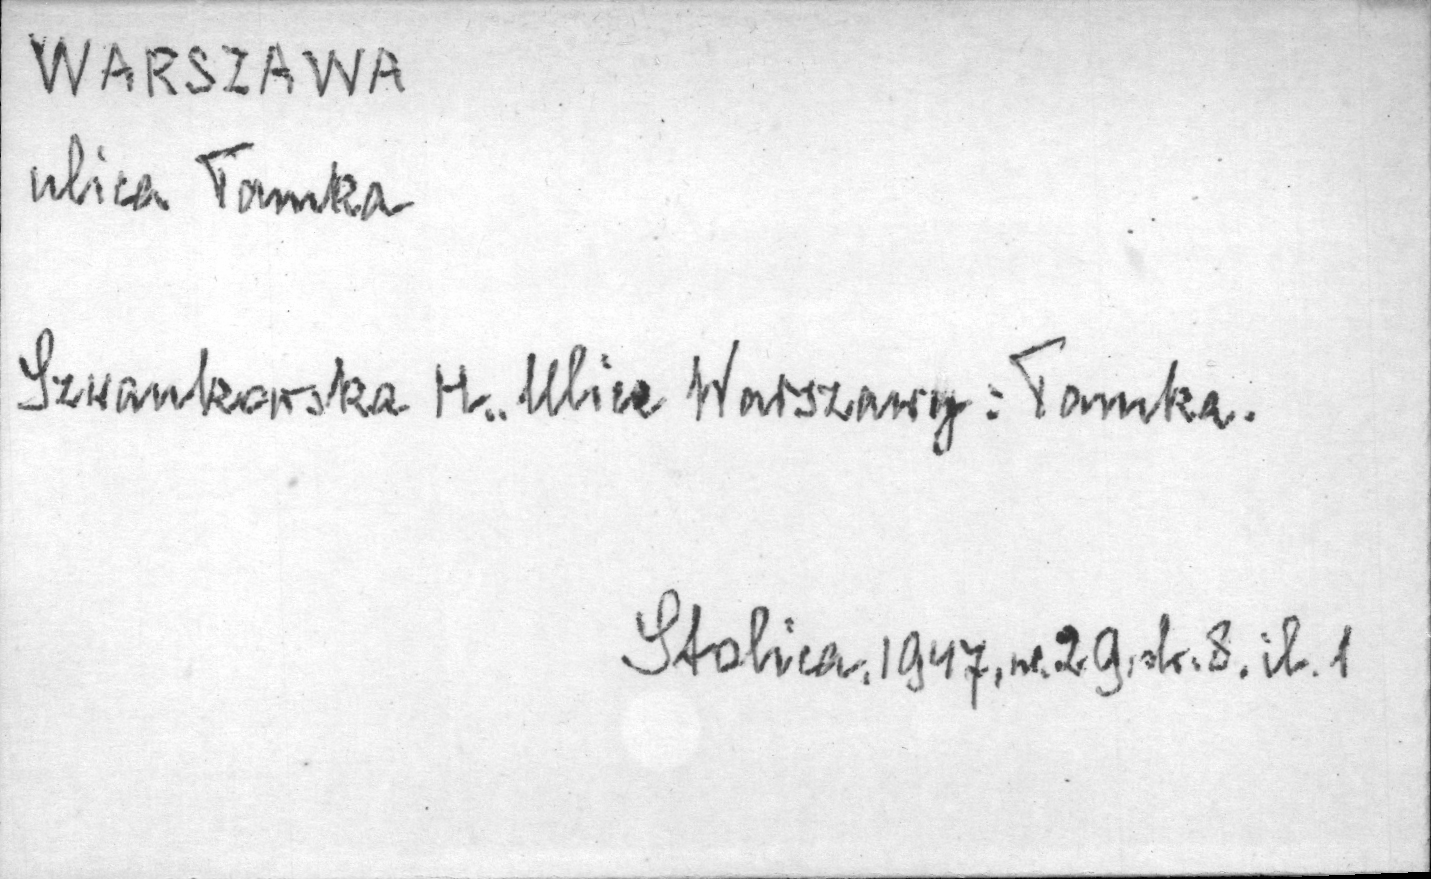 WARSZAWA
ulica Tamka
Szwankowska H.. Ulice Warszawy: Tamka.
Stolica. 1947, nr. 29, str. 8. il. 1